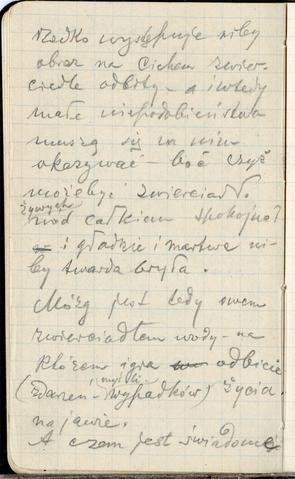 Rzadko występuje niby
obraz na cichem zwier-
ciedle odbity - a i wtedy
małe niepodobieństwa
muszą się w nim
okazywać - boć czyż
możebyć zwierciadło
żywych
wód całkiem spokojne?
i gładkie i martwe ni-
by twarda bryła.
Mózg jest tedy owem
zwierciadłem wody - na
którem igra odbicie
i myśli
(Zdarzeń - wypadków) życia.
na jawie.
A czem jest świadome